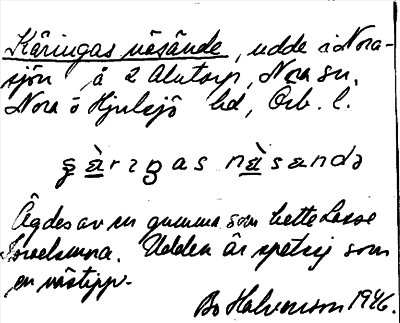 Käringas näsände, udde i Nora-
sjön å 2 Alntorp, Nora sn,
Nora o Hjulsjö hd, Örb. l.
Ägdes av en gumma som hette Lasse
. Udden är spetsig som
en nästipp.
Bo Halvarson 1946.